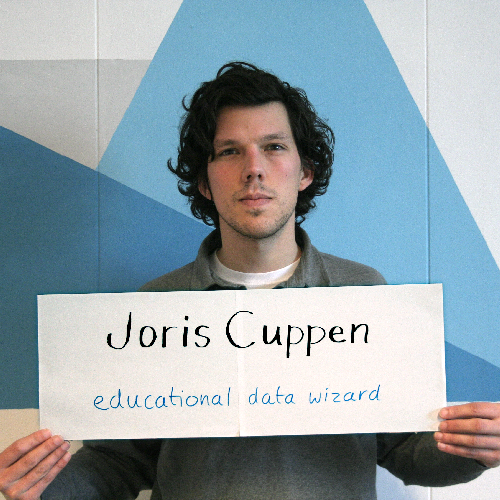 Joris Cuppen
educational data wizard